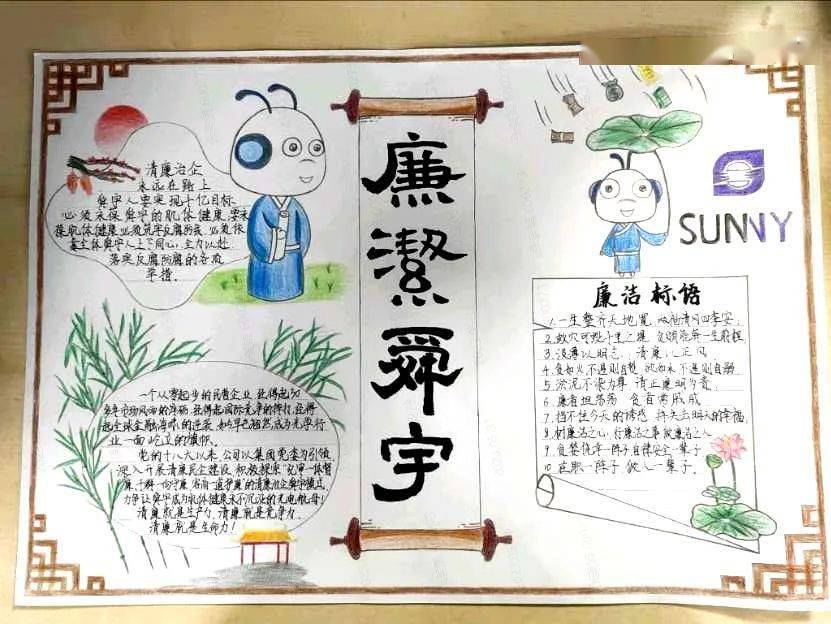 清廉治企
永远在路上
舜宇人要实现千亿目标
必须永保舜宇的肌体健康,要永
葆肌体健康必须筑牢反腐防线,必须依
靠全体舜宇人上下同心,全力以赴
落实反腐防腐的各项
举措。
一个从零起步的民营企业,经得起30
多年市场风雨的洗礼,经得起国际竞争的捶打,经得
起全球金融海啸的逆袭,如今早已超然成为光学行
业一面屹立的旗帜。
党的十八大以来,公司以集团党委为引领
深入开展清廉民企建设,积极探索
力争让舜宇成为肌体健康永不沉没的光电航母!
清廉就是生产力,清廉就是竞争力,
清廉就是生命力!
廉潔舜宇
SUNNY
廉洁标语
1.一生整齐天地宽,两袖清风四季安;
2.蚁穴可毁千里之堤,贪婪能葬一生前程
3.淡薄以明志,清廉以正风
4.贪如火不遏则自焚,欲如水不遏则自溺
5.为尊 请正廉明为贵
6.廉者坦荡荡 贪者常戚戚
7.挡不住今天的诱惑 将失去明天的幸福
8.树廉洁之心,行廉洁之事做廉洁之人
9.一阵子 自律安全一辈子
10.一阵子 做人一辈子.